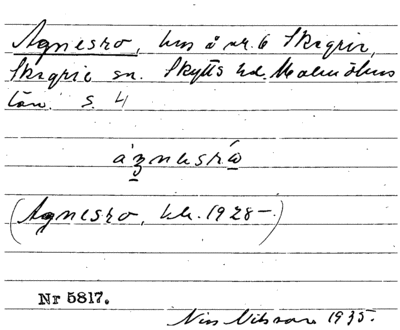 Agnesro, hus å nr. 6 Skegrie,
Skegrie sn. Skytts hd. Malmöhus
län. s. 4
(Agnesro, bb. 1928-.)
Nr 5817.
Nils Nilsson 1935.